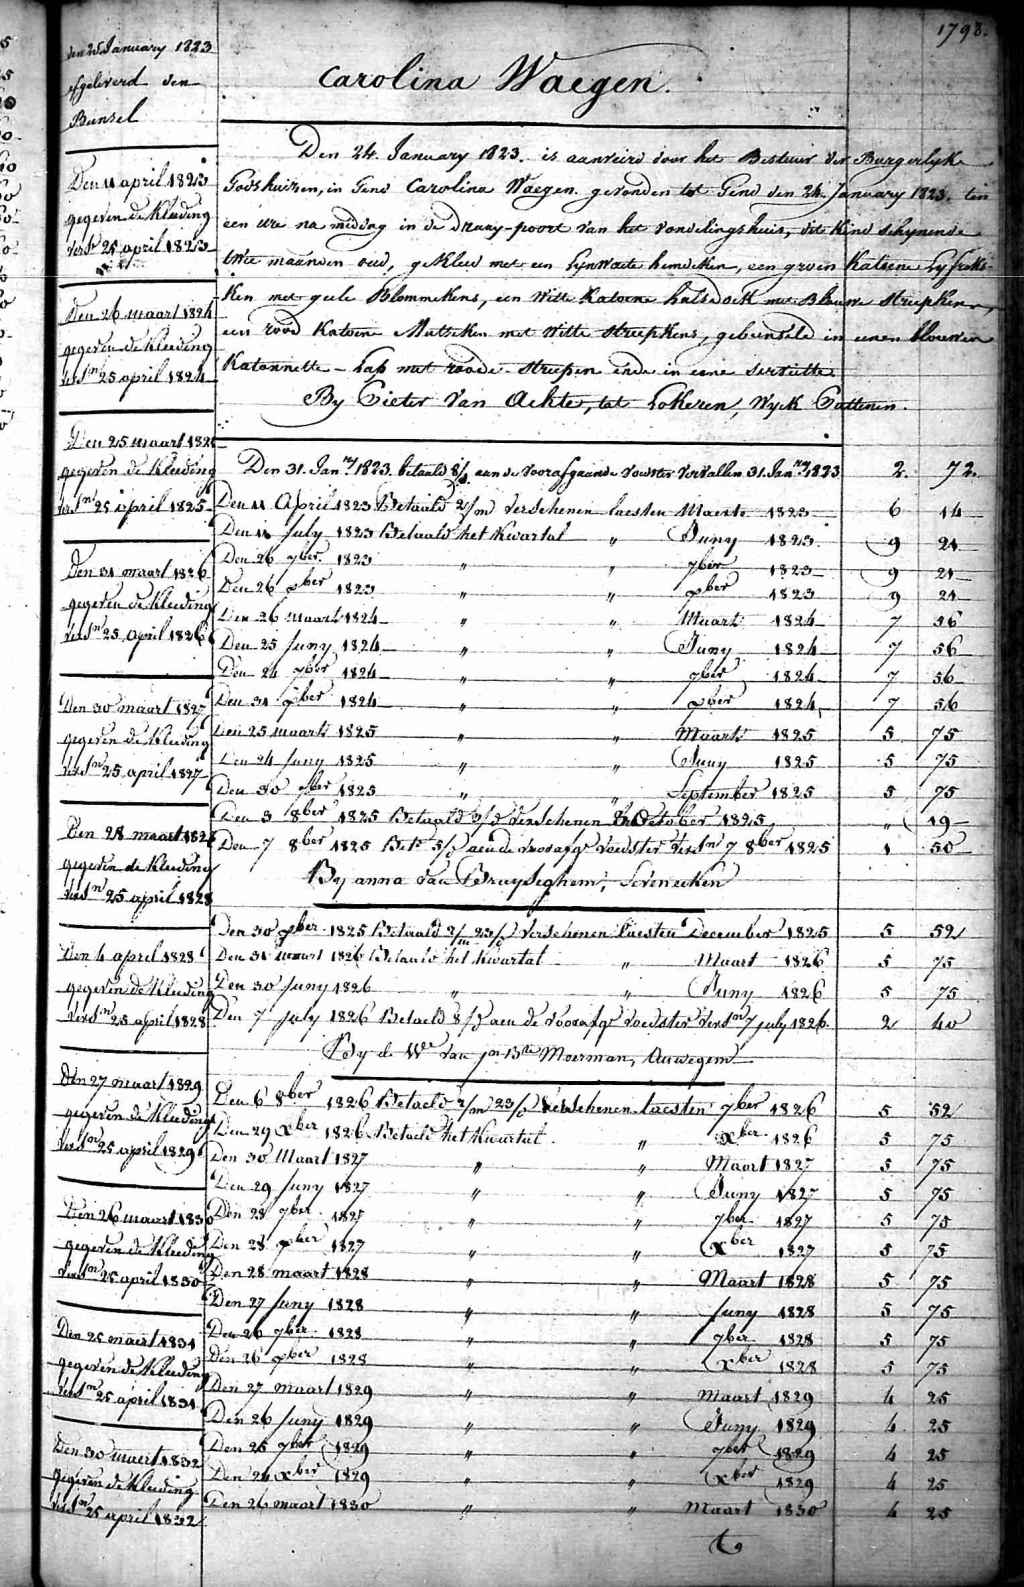 1793.
Carolina Waegen.
Den 24. January 1823. is aanveird door het Bestuur der Burgerlyke
Godshuizen, in Gend Carolina Waegen. gevonden tot Gend den 24. January 1823. ten
een ure na middag in de Draay-poort van het vondelingshuis, dit kind schynende
twee maanden oud, gekleed met een Lynwaete hemdeken, een groen Katoene Lyfrok-
ken met geele Blommekens, een Witte Katoene halsdoek met Blauwe streepkens,
een rood Katoene Mutseken met Witte streepkens, gebunseld in eenen blauwen
Katonnette - Lap met roode streepen ende in eene serviette
By Pieter Van Achte, tot Lokeren, Wyck
Den 31. Janry 1823. betaald 8/ aan de voorafgaande voedster vervallen 31. Janry 1823 2. 72.
Den 11 April 1823 Betaald 2/m Verschenen laesten Maerte 1823 6 14
Den 11 July 1823 Betaald het Kwartal " Juny 1823 9 21
Den 26 7ber 1823 " " 7ber 1823 9 21
Den 26 xber 1823 " " xber 1823 9 21
Den 26 Maart 1824 " " Maart 1824 7 56
Den 25 Juny 1824 " " Juny 1824 7 56
Den 24 7ber 1824 " " 7ber 1824 7 56
Den 31 xber 1824 " " xber 1824 7 56
Den 25 maart 1825 " " Maart 1825 5 75
Den 24 Juny 1825 " " Juny 1825 5 75
Den 30 7ber 1825 " " September 1825 5 75
Den 3 8ber 1825 Betaald 3/ Verschenen October 1825, " 19
Den 7 8ber 1825 Bet. 5/ aen de voorafge voedster versn 7 8ber 1825 1 50
By anna Van
Den 30 xber 1825 Betaald 2/m 23/ Verschenen laesten December 1825 5 52
Den 31 maart 1826 Betaald het Kwartal " Maart 1826 5 75
Den 30 Juny 1826 " " Juny 1826 5 75
Den 7 july 1826 Betaeld 8/ aen de voorafge voedster versn 7 july 1826 2 40
By de We van Moerman, Auwegem
Den 6 8ber 1826 Betaeld 2/m 23/ Verschenen laesten 7ber 1826 5 52
Den 29 xber 1826 Betaeld het Kwartal " xber 1826 5 75
Den 30 Maart 1827 " " Maart 1827 5 75
Den 29 Juny 1827 " " Juny 1827 5 75
Den 28 7ber 1827 " " 7ber 1827 5 75
Den 28 xber 1827 " " xber 1827 5 75
Den 28 maart 1828 " " Maart 1828 5 75
Den 27 Juny 1828 " " Juny 1828 5 75
Den 26 7ber 1828 " " 7ber 1828 5 75
Den 26 xber 1828 " " xber 1828 5 75
Den 27 maart 1829 " " Maart 1829 4 25
Den 26 Juny 1829 " " Juny 1829 4 25
Den 25 7ber 1829 " " 7ber 1829 4 25
Den 24 xber 1829 " " xber 1829 4 25
Den 26 maart 1830 " " Maart 1830 4 25
den 25 January 1823
afgeleverd den
Bunsel
Den 11 april 1823
gegeven de Kleeding
versn 25 april 1823
Den 26 maart 1824
gegeven de Kleeding
versn 25 april 1824
Den 25 maart 1825
gegeven de Kleeding
versn 25 april 1825
Den 31 maart 1826
gegeven de Kleeding
versn 25 april 1826
Den 30 maart 1827
gegeven de Kleeding
versn 25 april 1827
Den 28 maart 1828
gegeven de Kleeding
versn 25 april 1828
Den 4 april 1828
gegeven de Kleeding
versn 25 april 1828
Den 27 maart 1829
gegeven de Kleeding
versn 25 april 1829
Den 26 maart 1830
gegeven de Kleeding
versn 25 april 1830
Den 25 maert 1831
gegeven de Kleeding
versn 25 april 1831
Den 30 maert 1832
gegeven de Kleeding
versn 25 april 1832